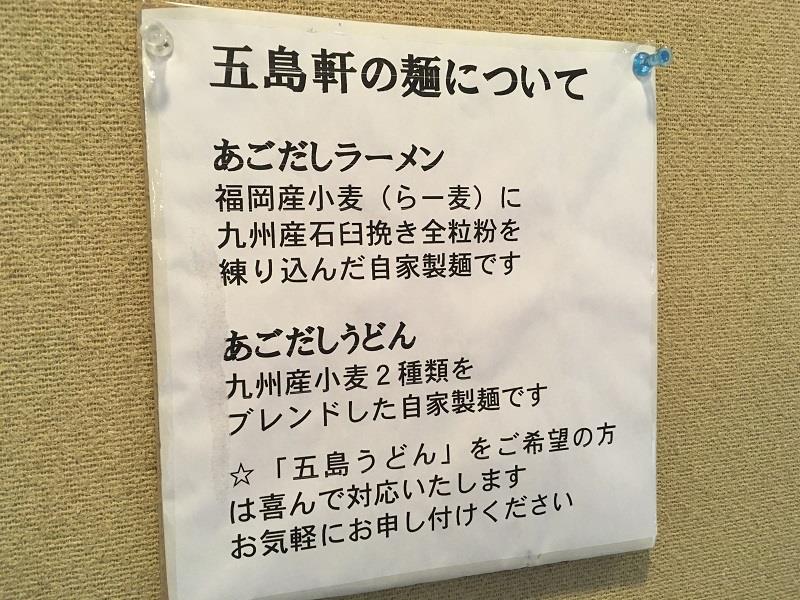 五島軒の麺について
あごだしラーメン
福岡産小麦（らー麦）に
九州産石臼挽き全粒粉を
練り込んだ自家製麺です
あごだしうどん
九州産小麦２種類を
ブレンドした自家製麺です
☆「五島うどん」をご希望の方
は喜んで対応いたします
お気軽にお申し付けください